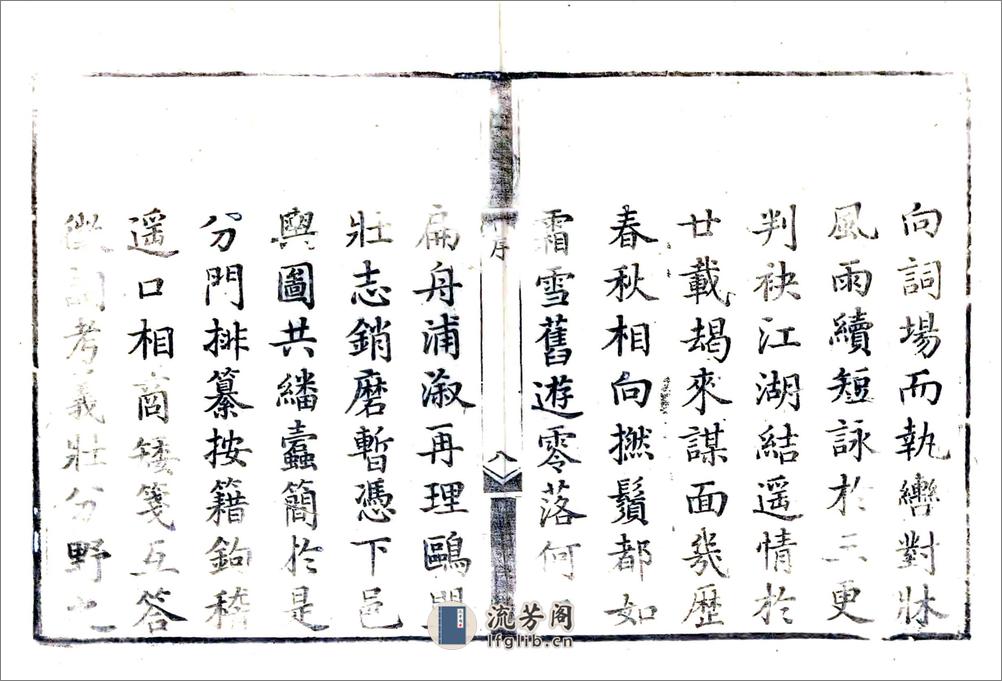 向詞場而執轡對牀
風雨續短詠於三更
判袂江湖結遥情於
廿載朅來謀面幾歷
春秋相向撚鬚都如
霜雪舊遊零落何
序
八
扁舟浦溆再理鷗
壯志銷磨暫憑下邑
輿圖共繙蠹簡於是
分門排纂按籍鉤稽
遥口相商矮箋互答
徵詞考義壯分野之
流芳阁
lfglib.cn